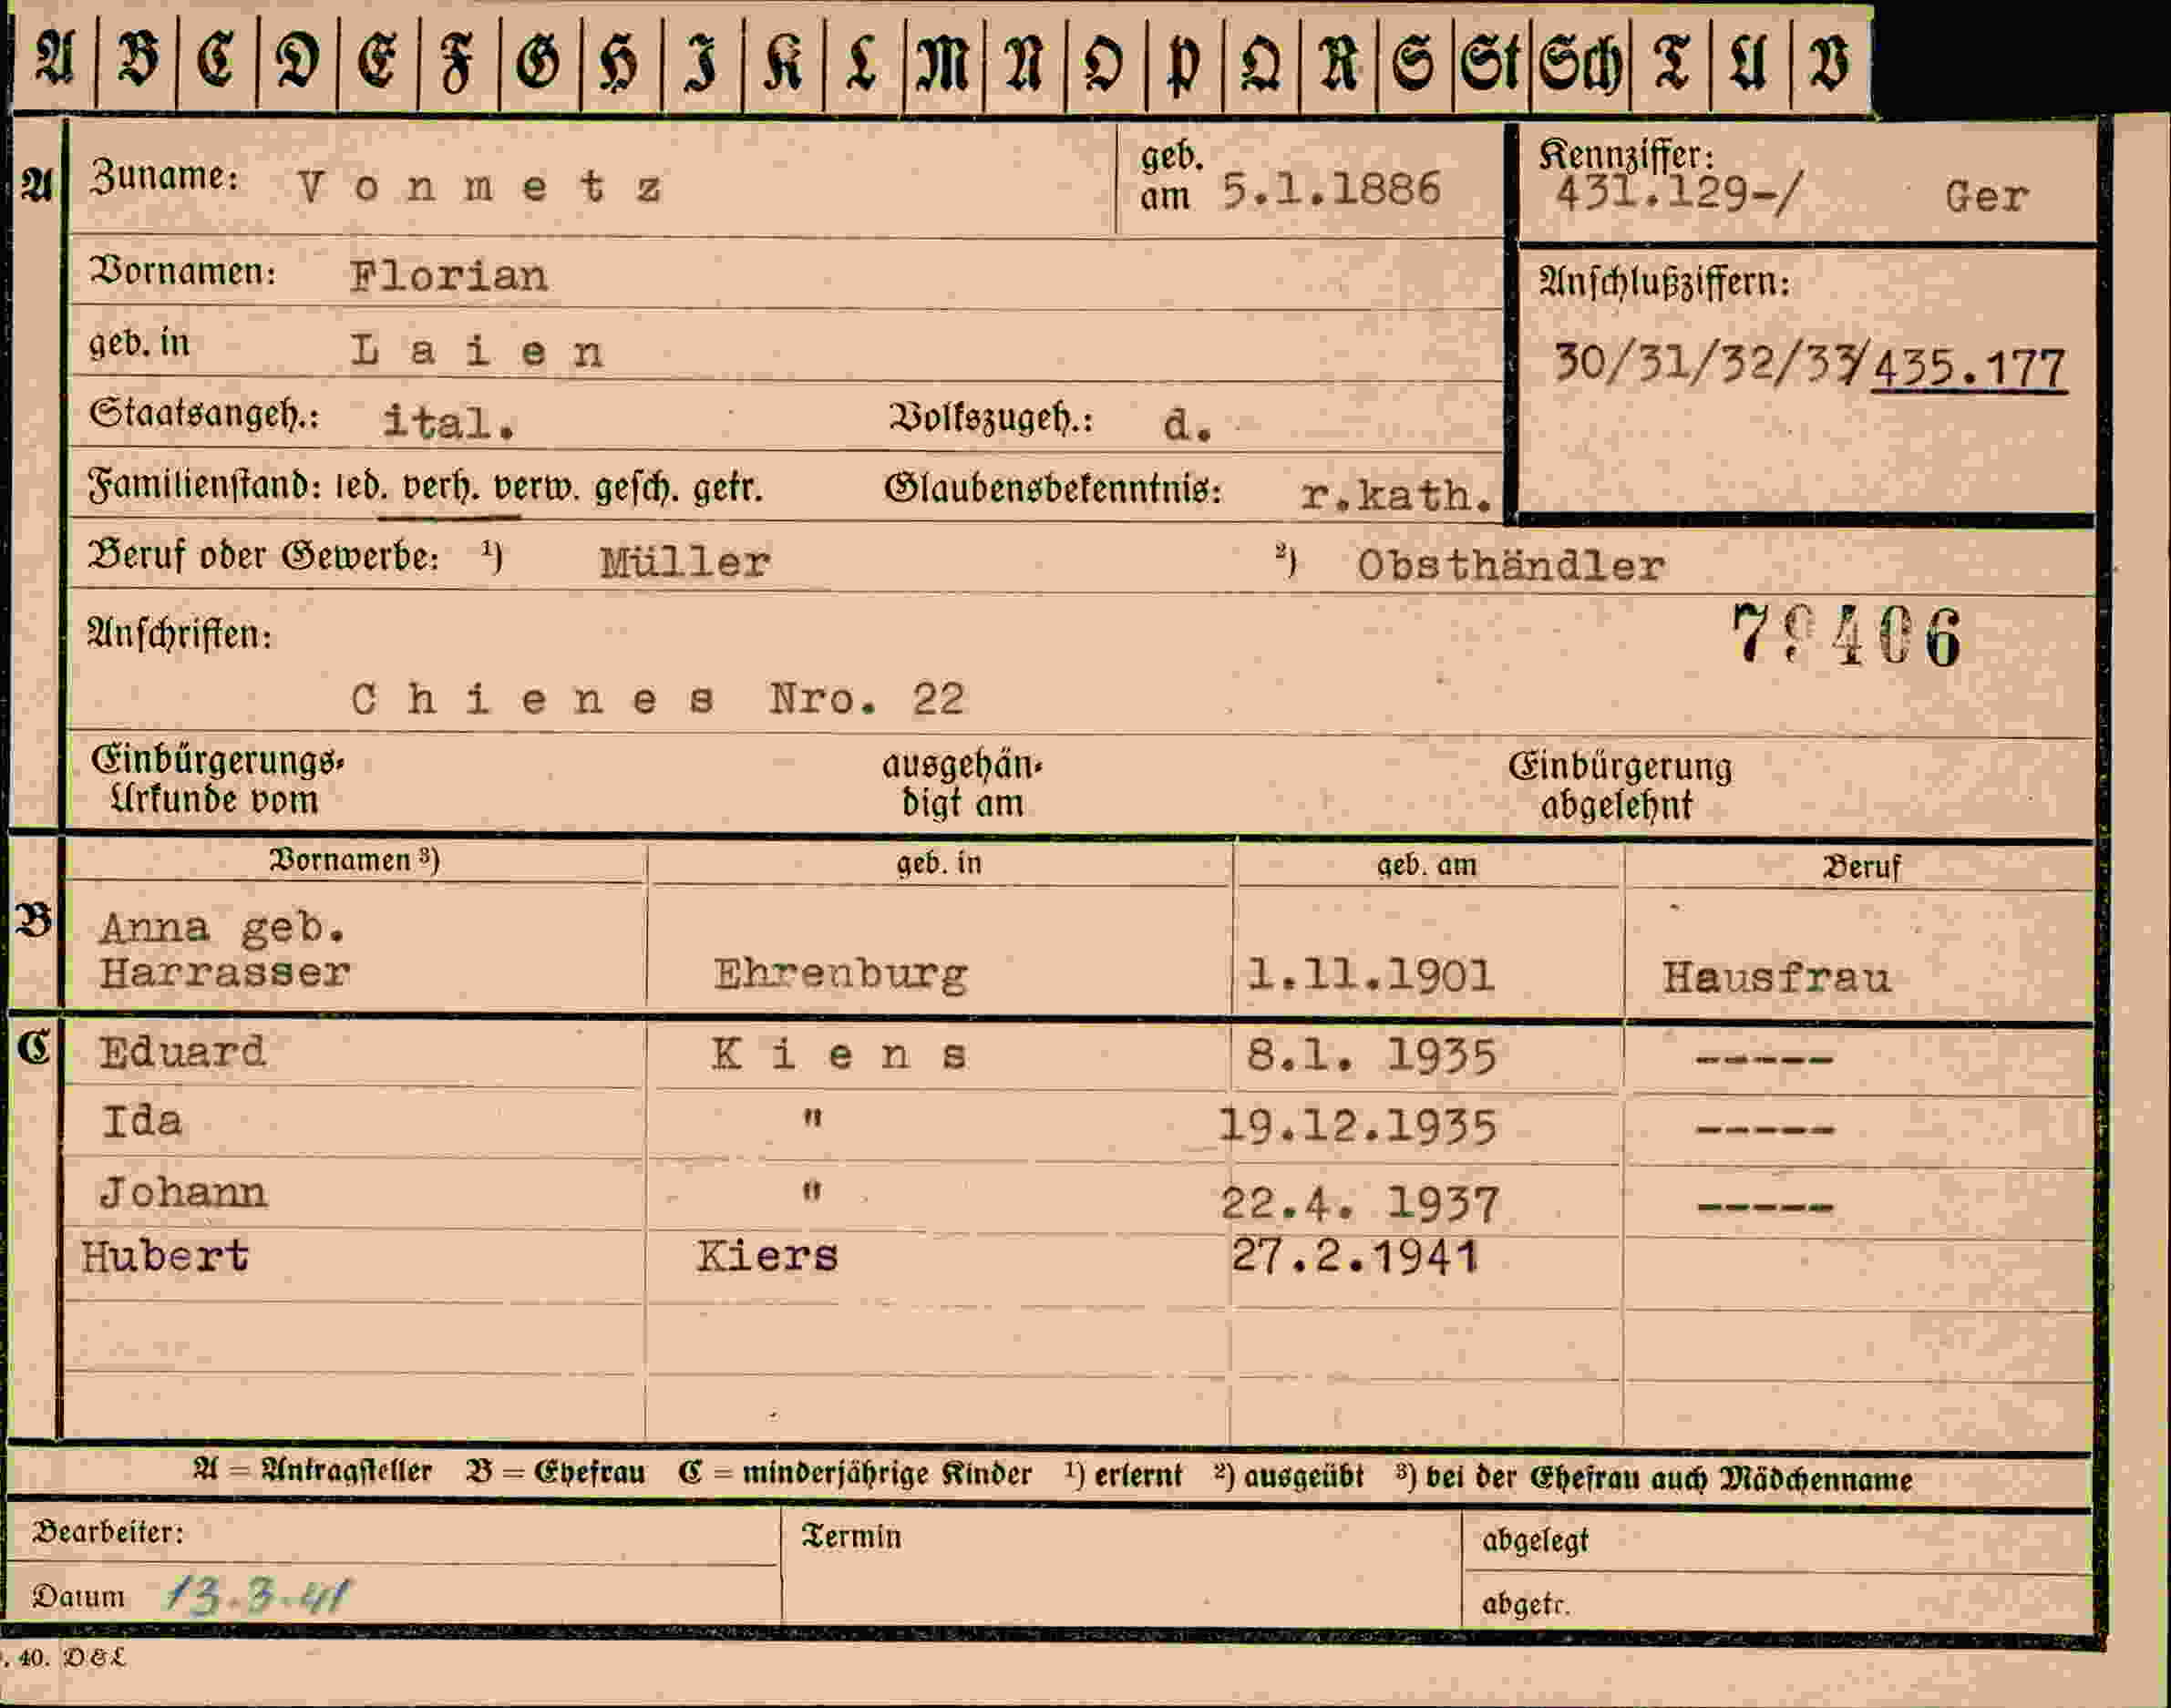 A B C D E F G H I K L M N O P Q R S St Sch T U V
A Zuname: V o n m e t z geb. am 5.1.1886
Kennziffer: 431.129-/ Ger
Vornamen: Florian
Anschlußziffern:
geb. in L a i e n
30/31/32/33/435.177
Staatsangeh.: ital. Volkszugeh.: d.
Familienstand: led. verh. verw. gesch. getr. Glaubensbekenntnis: r.kath.
Beruf oder Gewerbe: ¹) Müller ²) Obsthändler
Anschriften:
79406
C h i e n e s Nro. 22
Einbürgerungs- ausgehän- Einbürgerung
Urkunde vom digt am abgelehnt
Vornamen ³) geb. in geb. am Beruf
B Anna geb.
Harrasser Ehrenburg 1.11.1901 Hausfrau
C Eduard K i e n s 8.1. 1935 -----
Ida " 19.12.1935 -----
Johann " 22.4. 1937 -----
Hubert Kiers 27.2.1941
A = Antragsteller B = Ehefrau C = minderjährige Kinder ¹) erlernt ²) ausgeübt ³) bei der Ehefrau auch Mädchenname
Bearbeiter: Termin abgelegt
Datum 13.3.41 abgetr.
. 40. D & L